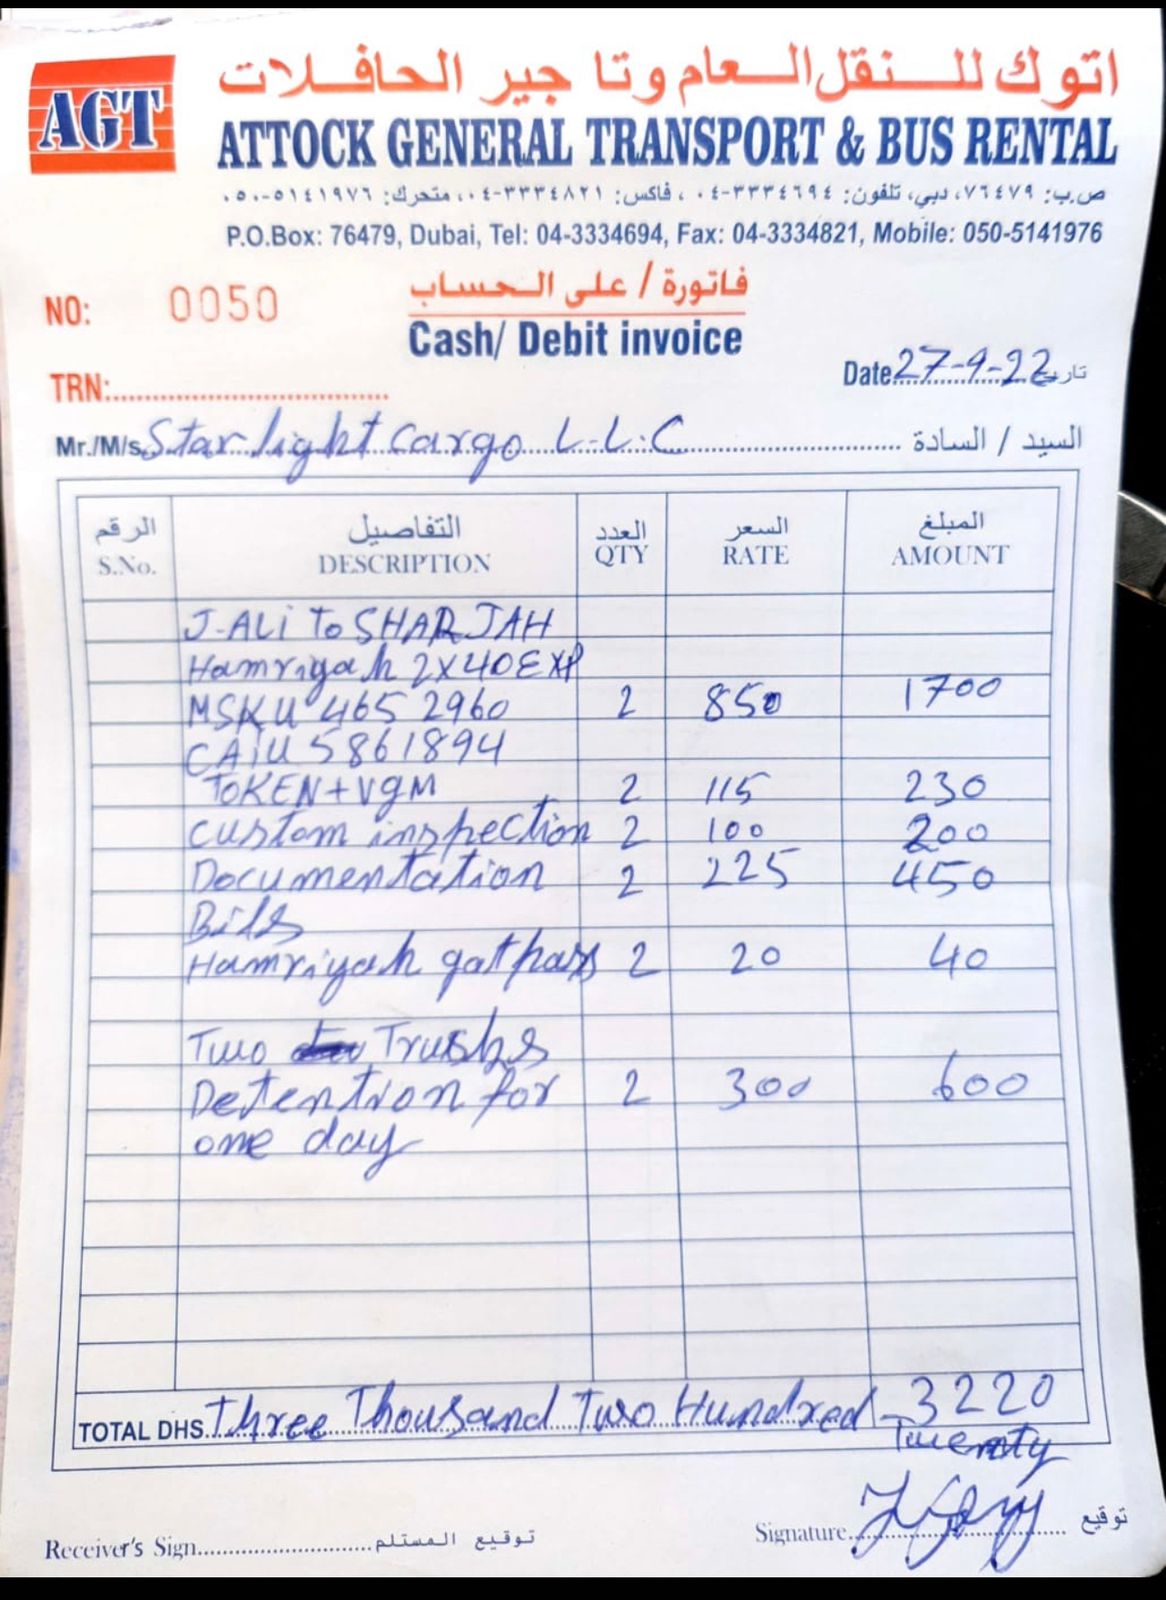 AGT
اتوك للنقل العام وتاجير الحافلات
ATTOCK GENERAL TRANSPORT & BUS RENTAL
ص.ب: ٧٦٤٧٩، دبي، تلفون: ٣٣٣٤٦٩٤-٠٤، فاكس: ٣٣٣٤٨٢١-٠٤، متحرك: ٥١٤١٩٧٦-٠٥٠
P.O.Box: 76479, Dubai, Tel: 04-3334694, Fax: 04-3334821, Mobile: 050-5141976
NO: 0050
فاتورة / على الحساب
Cash/ Debit invoice
TRN:
Date 27-9-22 تاريخ
Mr./M/s. Star light cargo L.L.C السيد / السادة
الرقم التفاصيل العدد السعر المبلغ
S.No. DESCRIPTION QTY RATE AMOUNT
J-ALi To SHARJAH
Hamriyah 2X40EXP
MSKU 465 2960 2 850 1700
CAiU 5861894
ToKEN+VgM 2 115 230
custom inspection 2 100 200
Documentation 2 225 450
Bills
Hamriyah gatpass 2 20 40
Two Trushs
Detention for 2 300 600
one day
TOTAL DHS. Three Thousand Two Hundred 3220
Twenty
Receiver's Sign توقيع المستلم
Signature توقيع